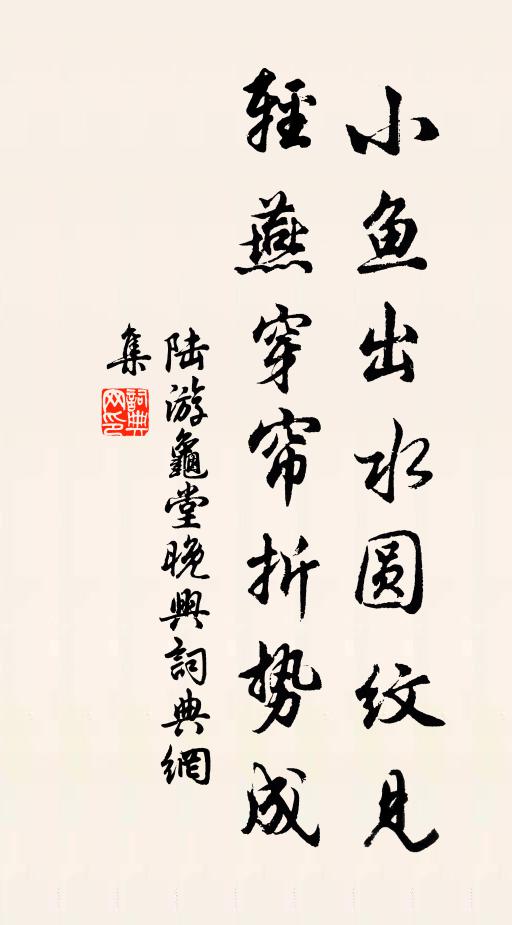 小鱼出水圆纹见
輕燕穿帘折势成
陆游龜堂晚興詞典網
集
詞典网印